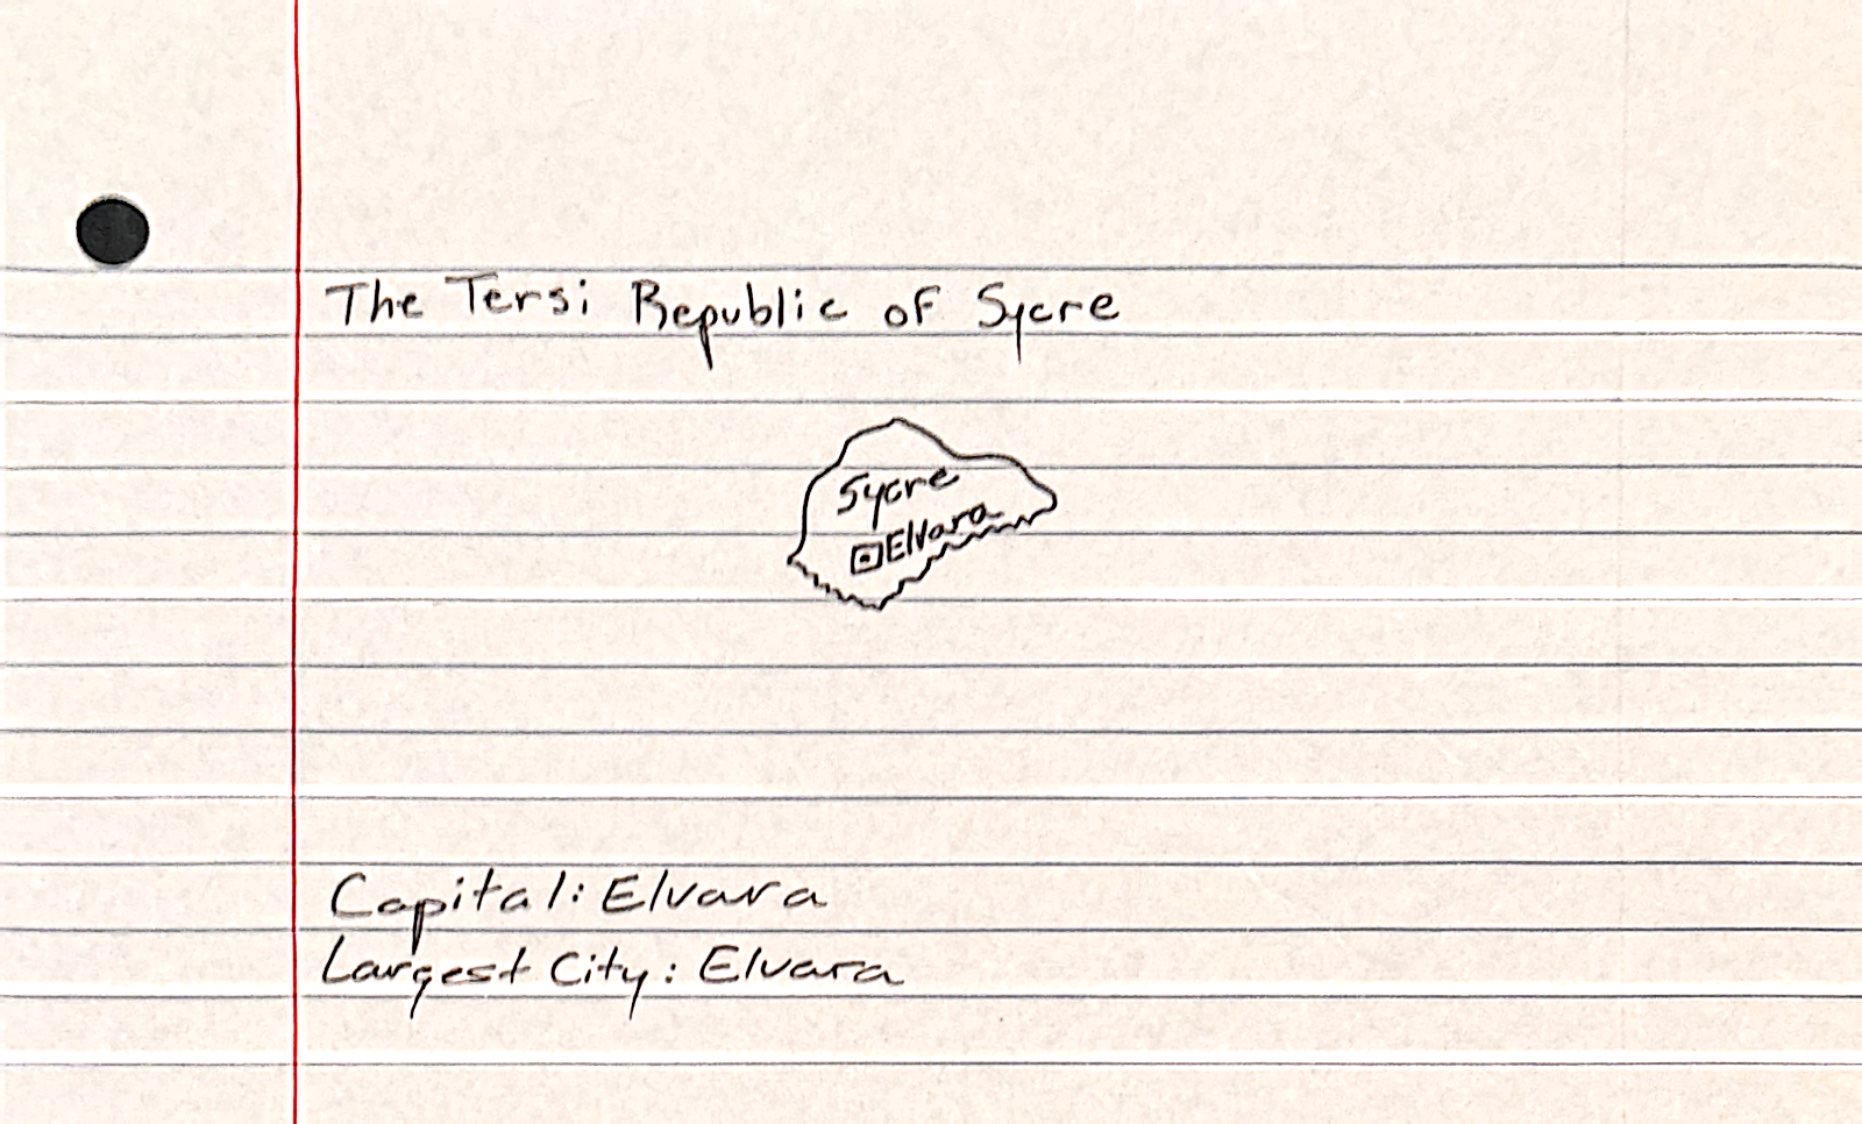 The Tersi Republic of Sycre
Sycre
Elvara
Capital: Elvara
Largest City: Elvara